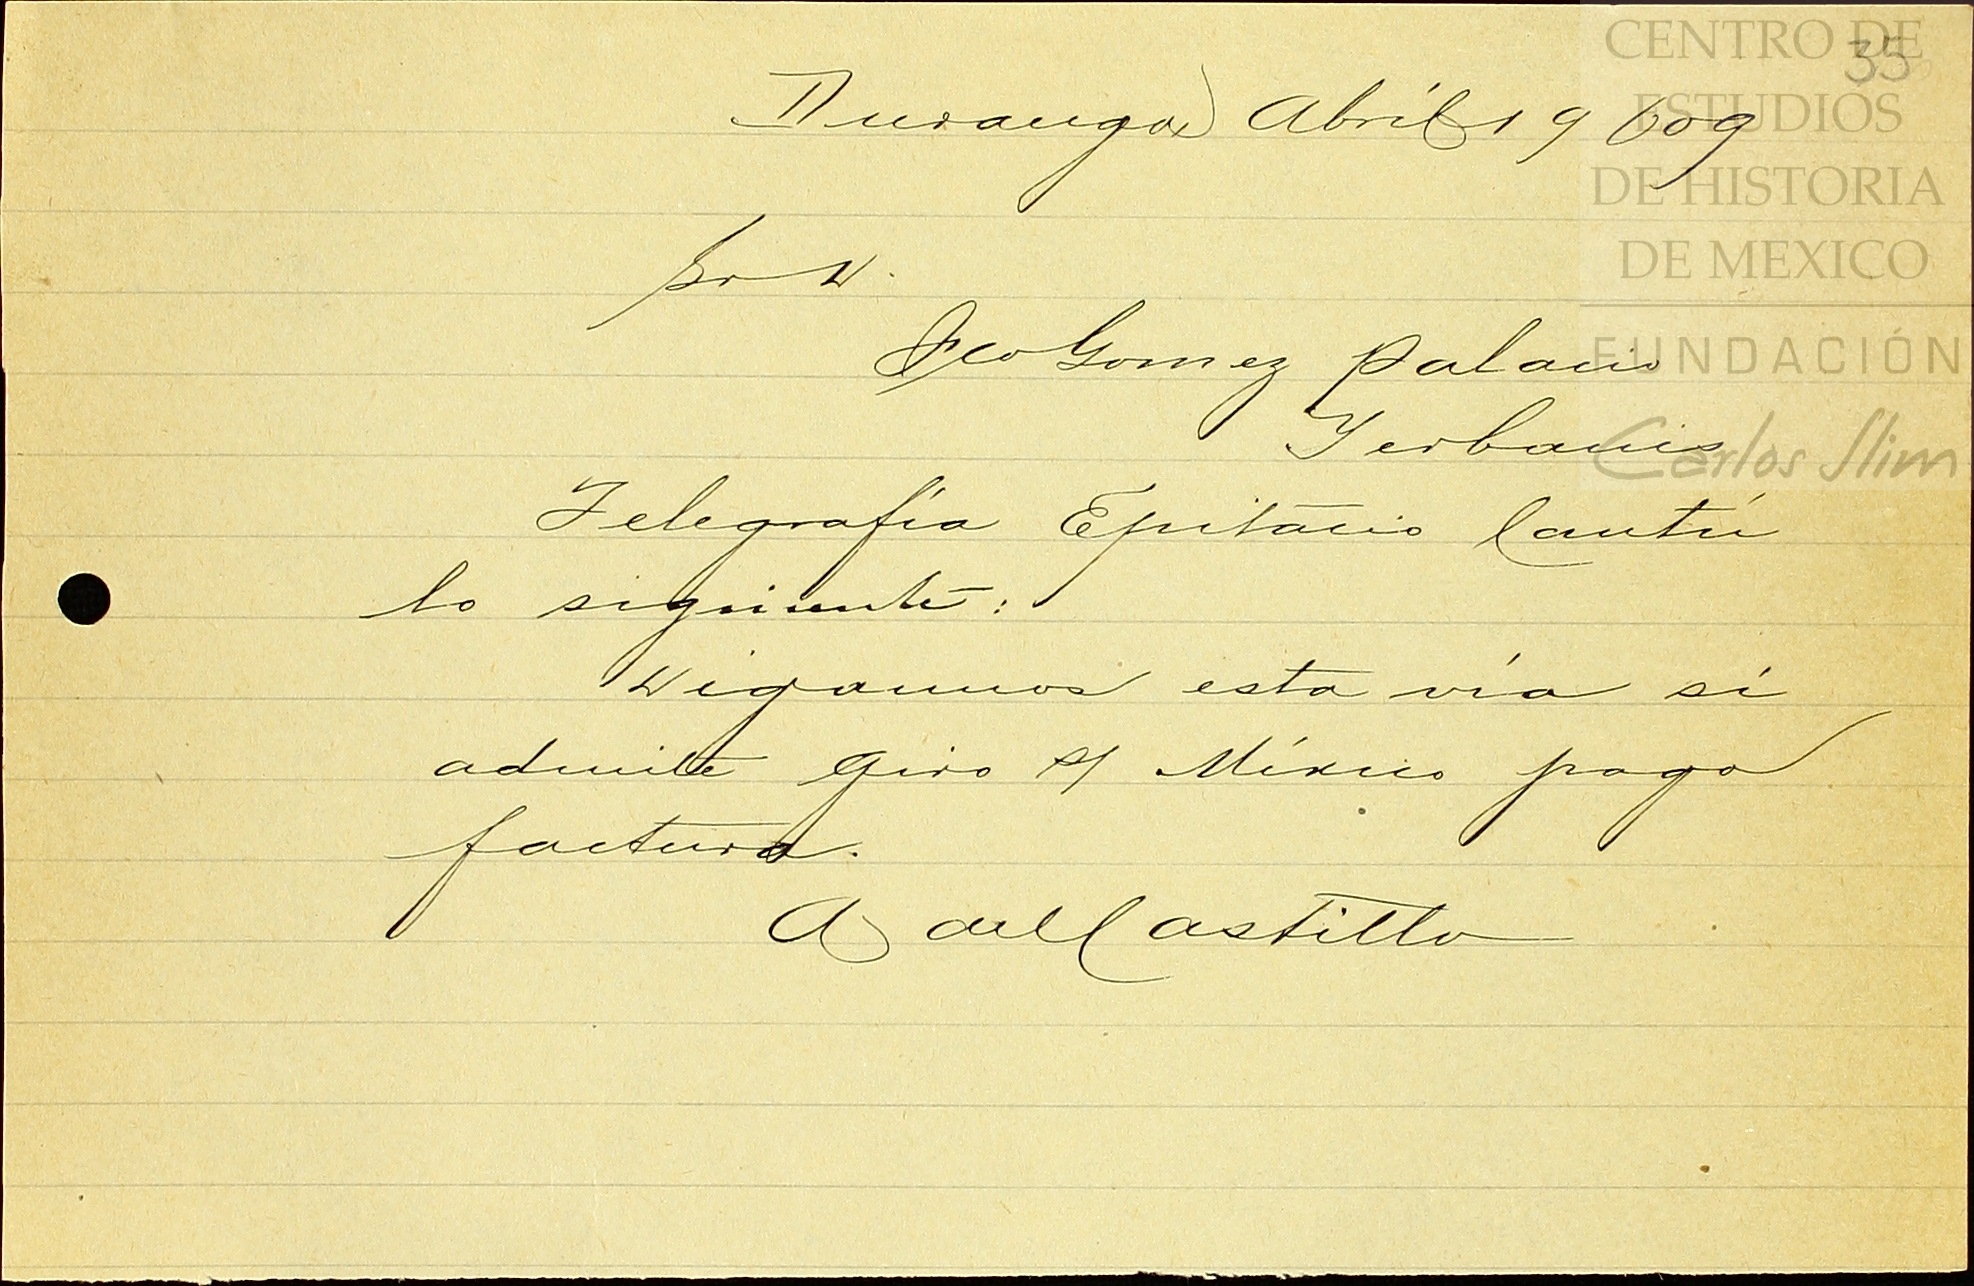 35
Durango Abril 19 609
Sr D.
Fco Gomez Palacio
Yerbanis
Telegrafía Epitacio Cantú
lo siguiente:
Digannos esta vía si
admite giro s/ México pago
factura.
A del Castillo
CENTRO DE
ESTUDIOS
DE HISTORIA
DE MEXICO
FUNDACIÓN
Carlos Slim